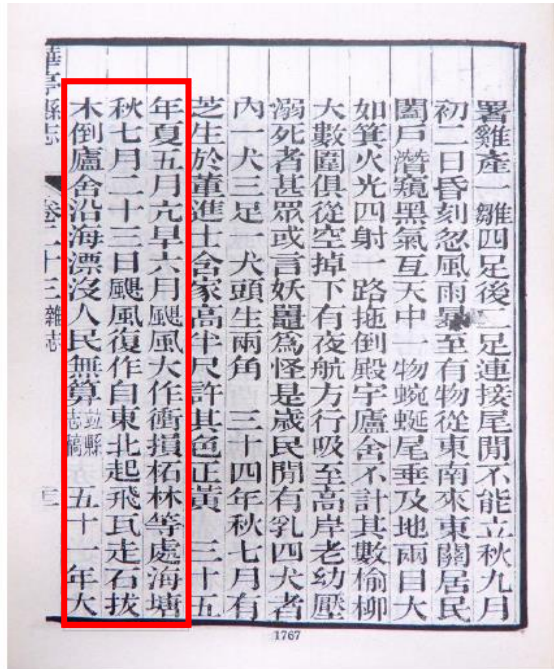 署雞產一雛四足後二足連接尾閒不能立秋九月
初二日昏刻忽風雨暴至有物從東南來東關居民
闔戶潛窺黑氣互天中一物蜿蜒尾垂及地兩目大
如箕火光四射一路拖倒殿宇廬舍不計其數榆柳
大數圍俱從空掉下有夜航方行吸至高岸老幼壓
溺死者甚眾或言妖鼉為怪是歲民閒有乳四犬者
內一犬三足一犬頭生兩角 三十四年秋七月有
芝生於董進士舍家高半尺許其色正黃 三十五
年夏五月亢旱六月颶風大作衝損柘林等處海塘
秋七月二十三日颶風復作自東北起飛瓦走石拔
木倒廬舍沿海漂沒人民無算 竝縣志稿 五十一年大
華亭縣志 卷二十三 雜志
1767